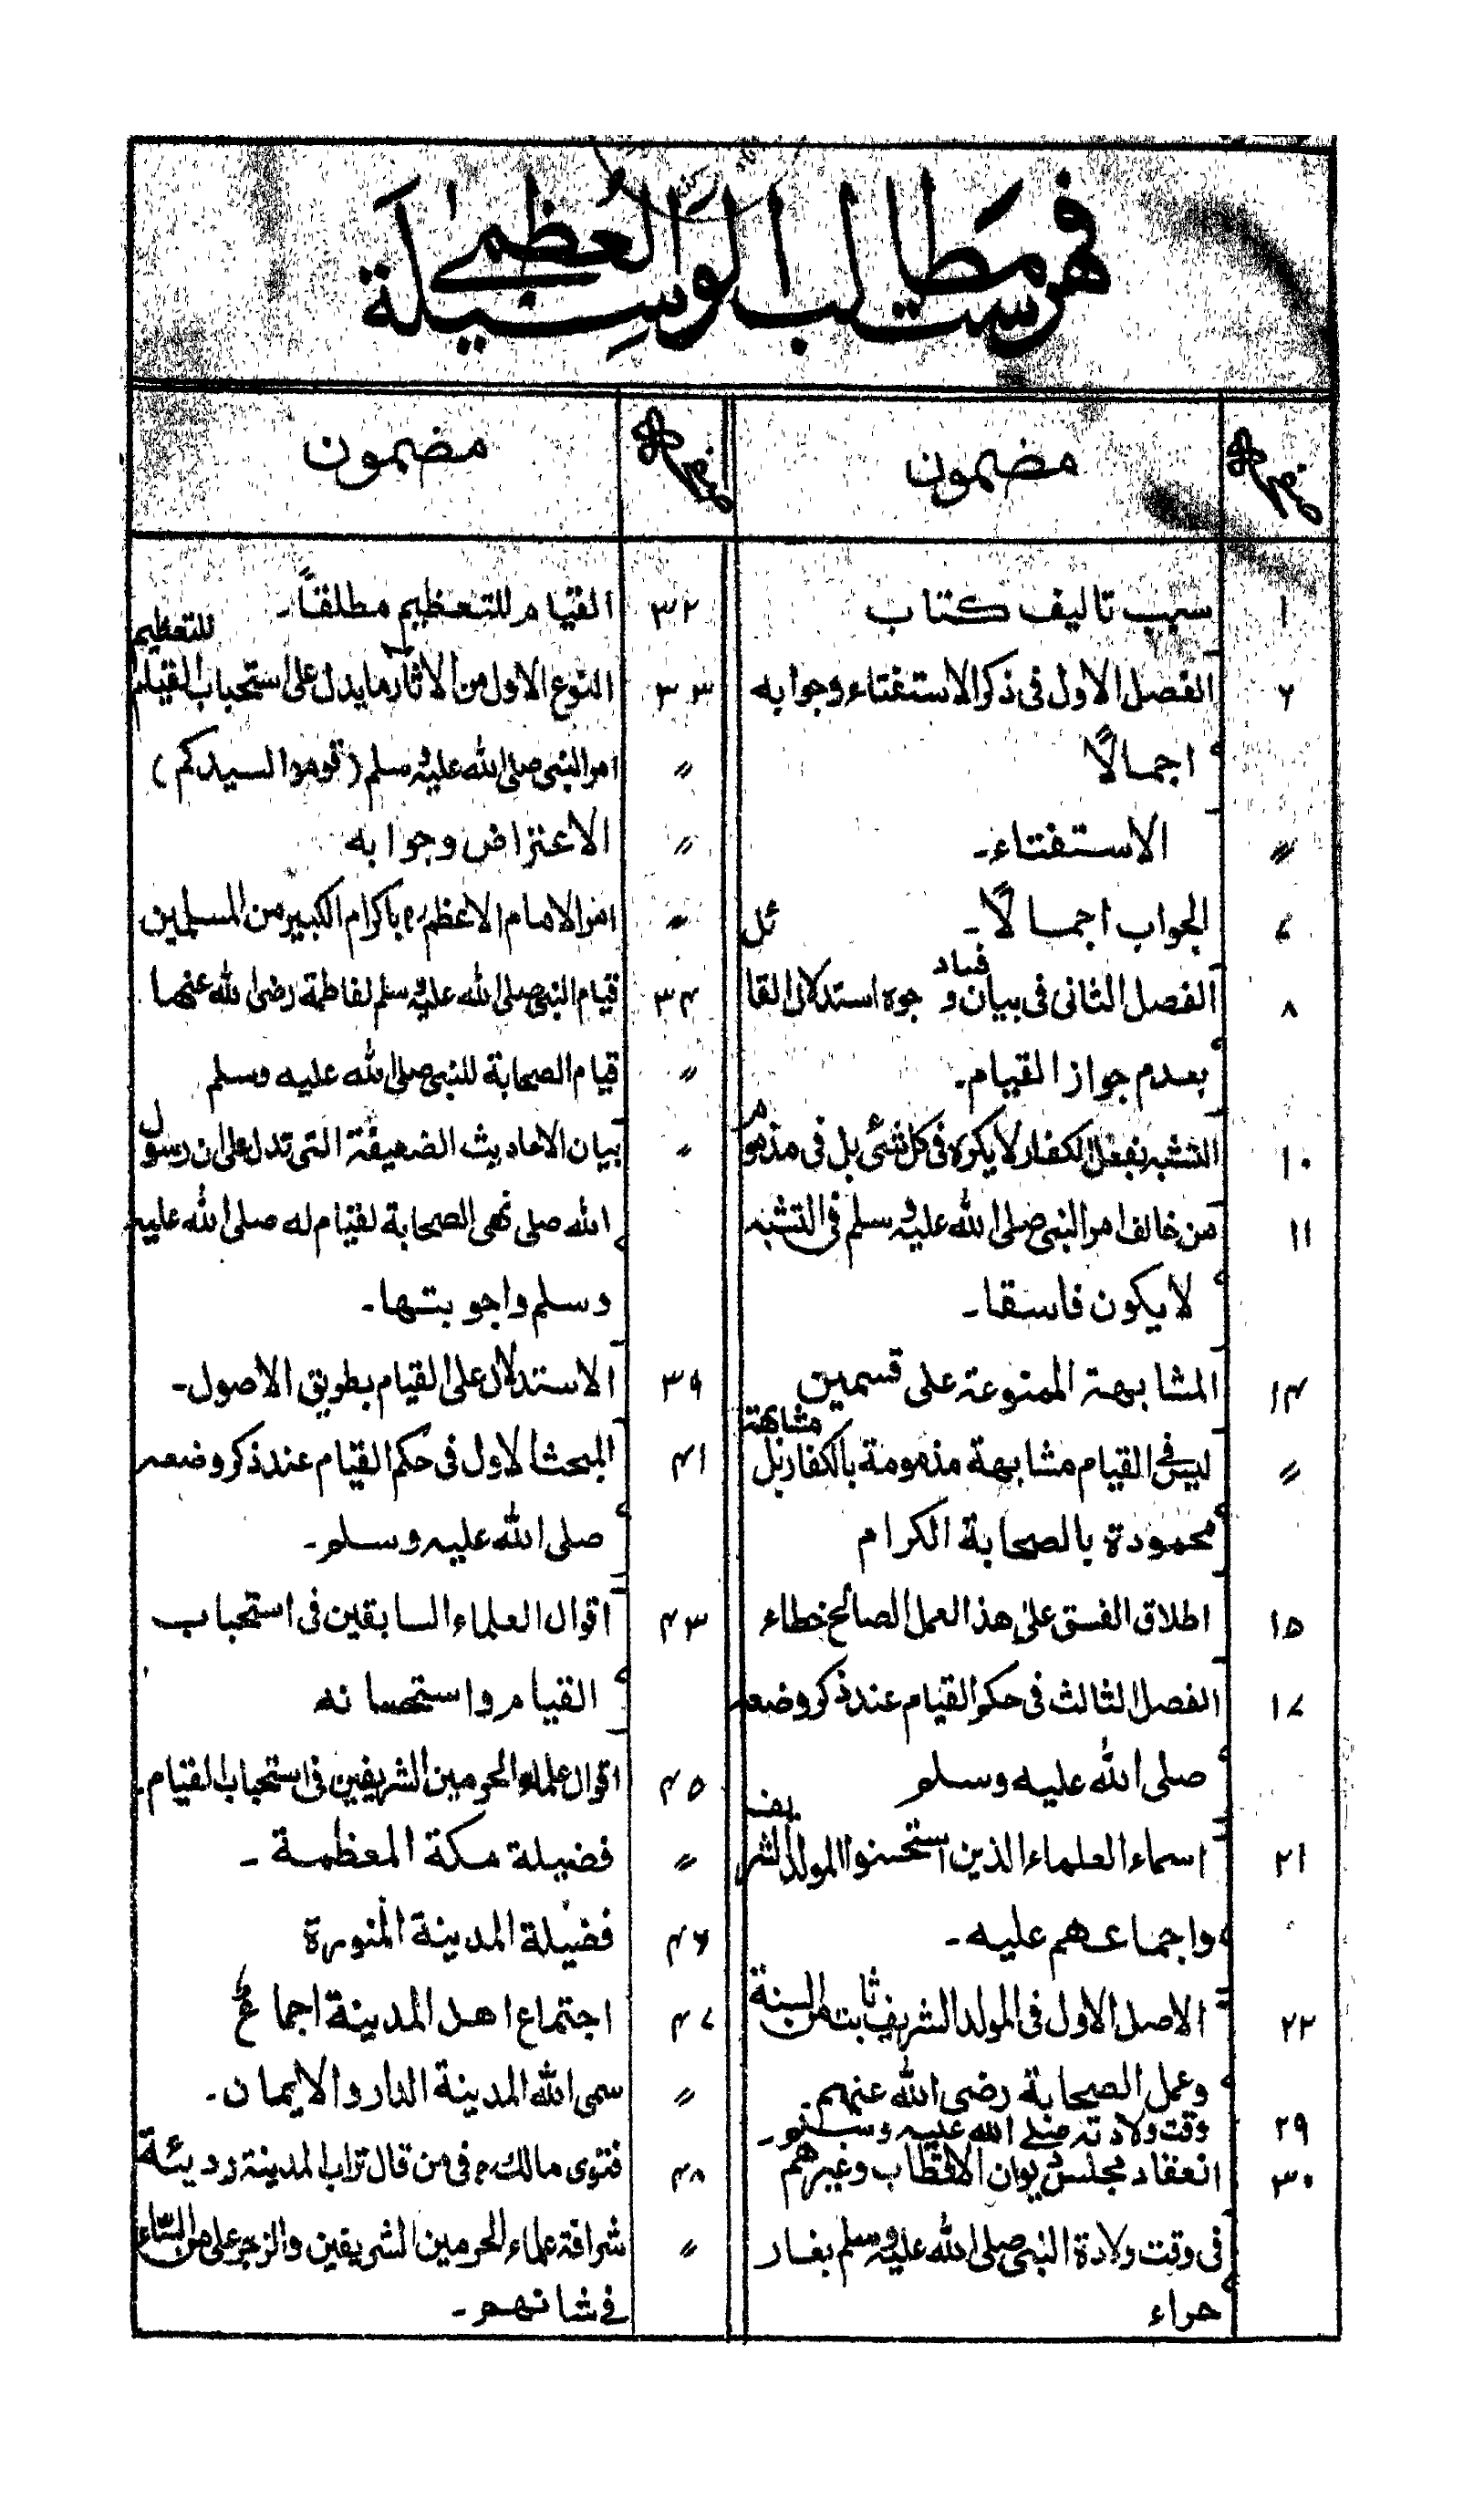 فهرست مطالب الوسيلة العظمى
نمبر صفحہ
مضمون
١ سبب تاليف كتاب
٦ الفصل الاول فى ذكر الاستفتاء وجوابه
اجمالاً
〃 الاستفتاء۔
٧ الجواب اجمالاً۔
٨ الفصل الثانى فى بيان فساد وجوه استدلال القائل
بعدم جواز القيام۔
١٠ التشبه بفعل الكفار لا يكره فى كل شئى بل فى مذموم
١١ من خالف امر النبى صلى الله عليه وسلم فى التشبه
لا يكون فاسقا۔
١٤ المشابهة الممنوعة على قسمين
〃 ليس فى القيام مشابهة مذمومة بالكفار بل مشابهة
محمودة بالصحابة الكرام
١٥ اطلاق الفسق على هذا العمل الصالح خطاء
١٧ الفصل الثالث فى حكم القيام عند ذكر وضعه
صلى الله عليه وسلم
٢١ اسماء العلماء الذين استحسنوا المولد الشريف
واجماعهم عليه۔
٢٢ الاصل الاول فى المولد الشريف ثابت من السنة
وعمل الصحابة رضى الله عنهم
٢٩ وقت ولادته صلى الله عليه وسلم۔
٣٠ انعقاد مجلس ديوان الاقطاب وغيرهم
فى وقت ولادة النبى صلى الله عليه وسلم بغار
حراء
نمبر صفحہ
مضمون
٣٢ القيام للتعظيم مطلقاً۔
٣٣ النوع الاول من الآثار ما يدل على استحباب القيام للتعظيم
〃 امر النبى صلى الله عليه وسلم (قوموا لسيدكم)
〃 الاعتراض وجوابه
〃 امر الامام الاعظمؒ باكرام الكبير من المسلمين
٣٤ قيام النبى صلى الله عليه وسلم لفاطمة رضى الله عنها
〃 قيام الصحابة للنبى صلى الله عليه وسلم
〃 بيان الاحاديث الضعيفة التى تدل على ان رسول
الله صلى نهى الصحابة لقيام له صلى الله عليه
وسلم واجوبتها۔
٣٩ الاستدلال على القيام بطريق الاصول۔
٤١ المبحث الاول فى حكم القيام عند ذكر وضعه
صلى الله عليه وسلم۔
٤٣ اقوال العلماء السابقين فى استحباب
القيام واستحسانه
٤٥ اقوال علماء الحرمين الشريفين فى استحباب القيام۔
〃 فضيلة مكة المعظمة۔
٤٦ فضيلة المدينة المنورة
٤٧ اجتماع اهل المدينة اجماع
〃 سمى الله المدينة الدار والايمان۔
٤٨ فتوى مالكؒ فى من قال تراب المدينة رديئة
〃 شرافة علماء الحرمين الشريفين والزجر على من اساء
فى شانهم۔